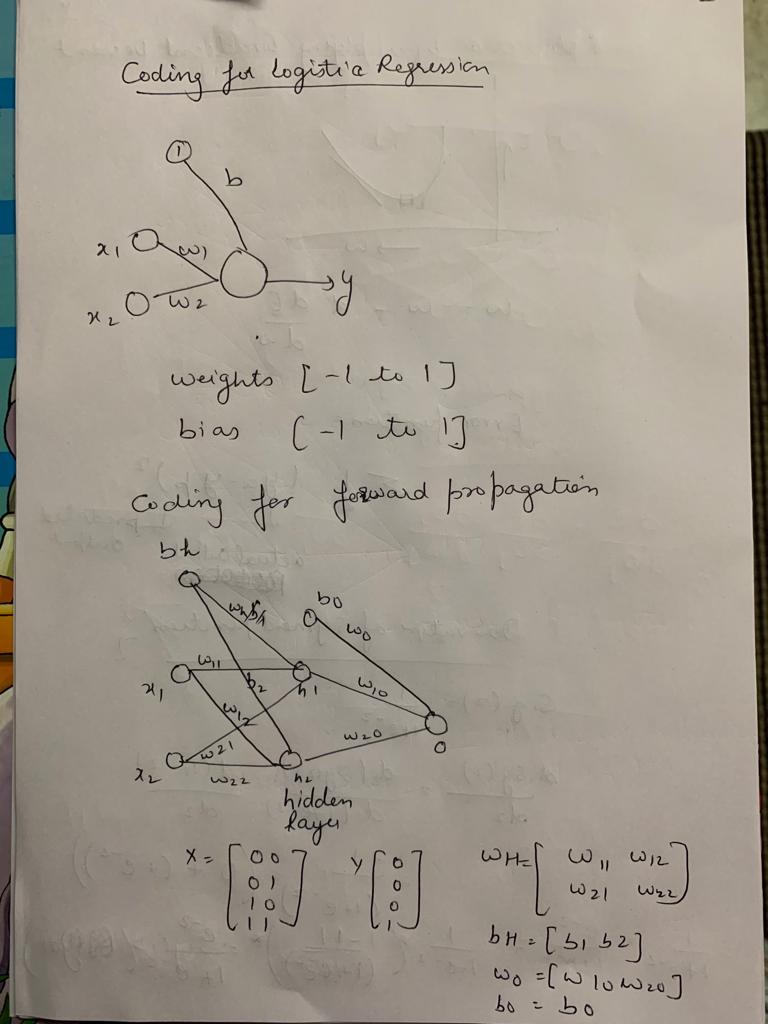 Coding for Logistic Regression
1
b
x1 w1
x2 w2
y
weights [-1 to 1]
bias [-1 to 1]
Coding for forward propagation
bh
b0
w0
x1 w11 b2 h1 w10
w12
w21 w20 0
x2 w22 h2
hidden
layer
X = [ 0 0 Y [ 0 wH = [ w11 w12
0 1 0 w21 w22 ]
1 0 0
1 1 ] 1 ] bH = [b1 b2]
w0 = [w10 w20]
b0 = b0